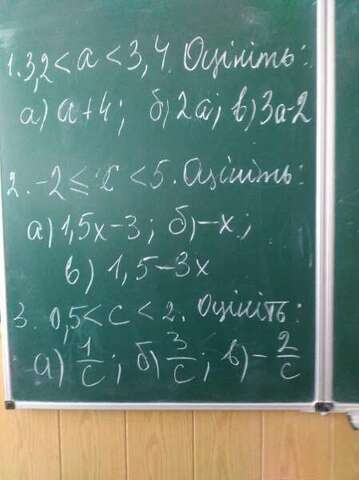 1. 3,2 < a < 3,4. Оцініть:
а) a+4; б) 2a; в) 3a-2
2. -2 ≤ x < 5. Оцініть:
а) 1,5x-3; б) -x;
в) 1,5-3x
3. 0,5 < c < 2. Оцініть:
а) 1/c; б) 3/c; в) -2/c